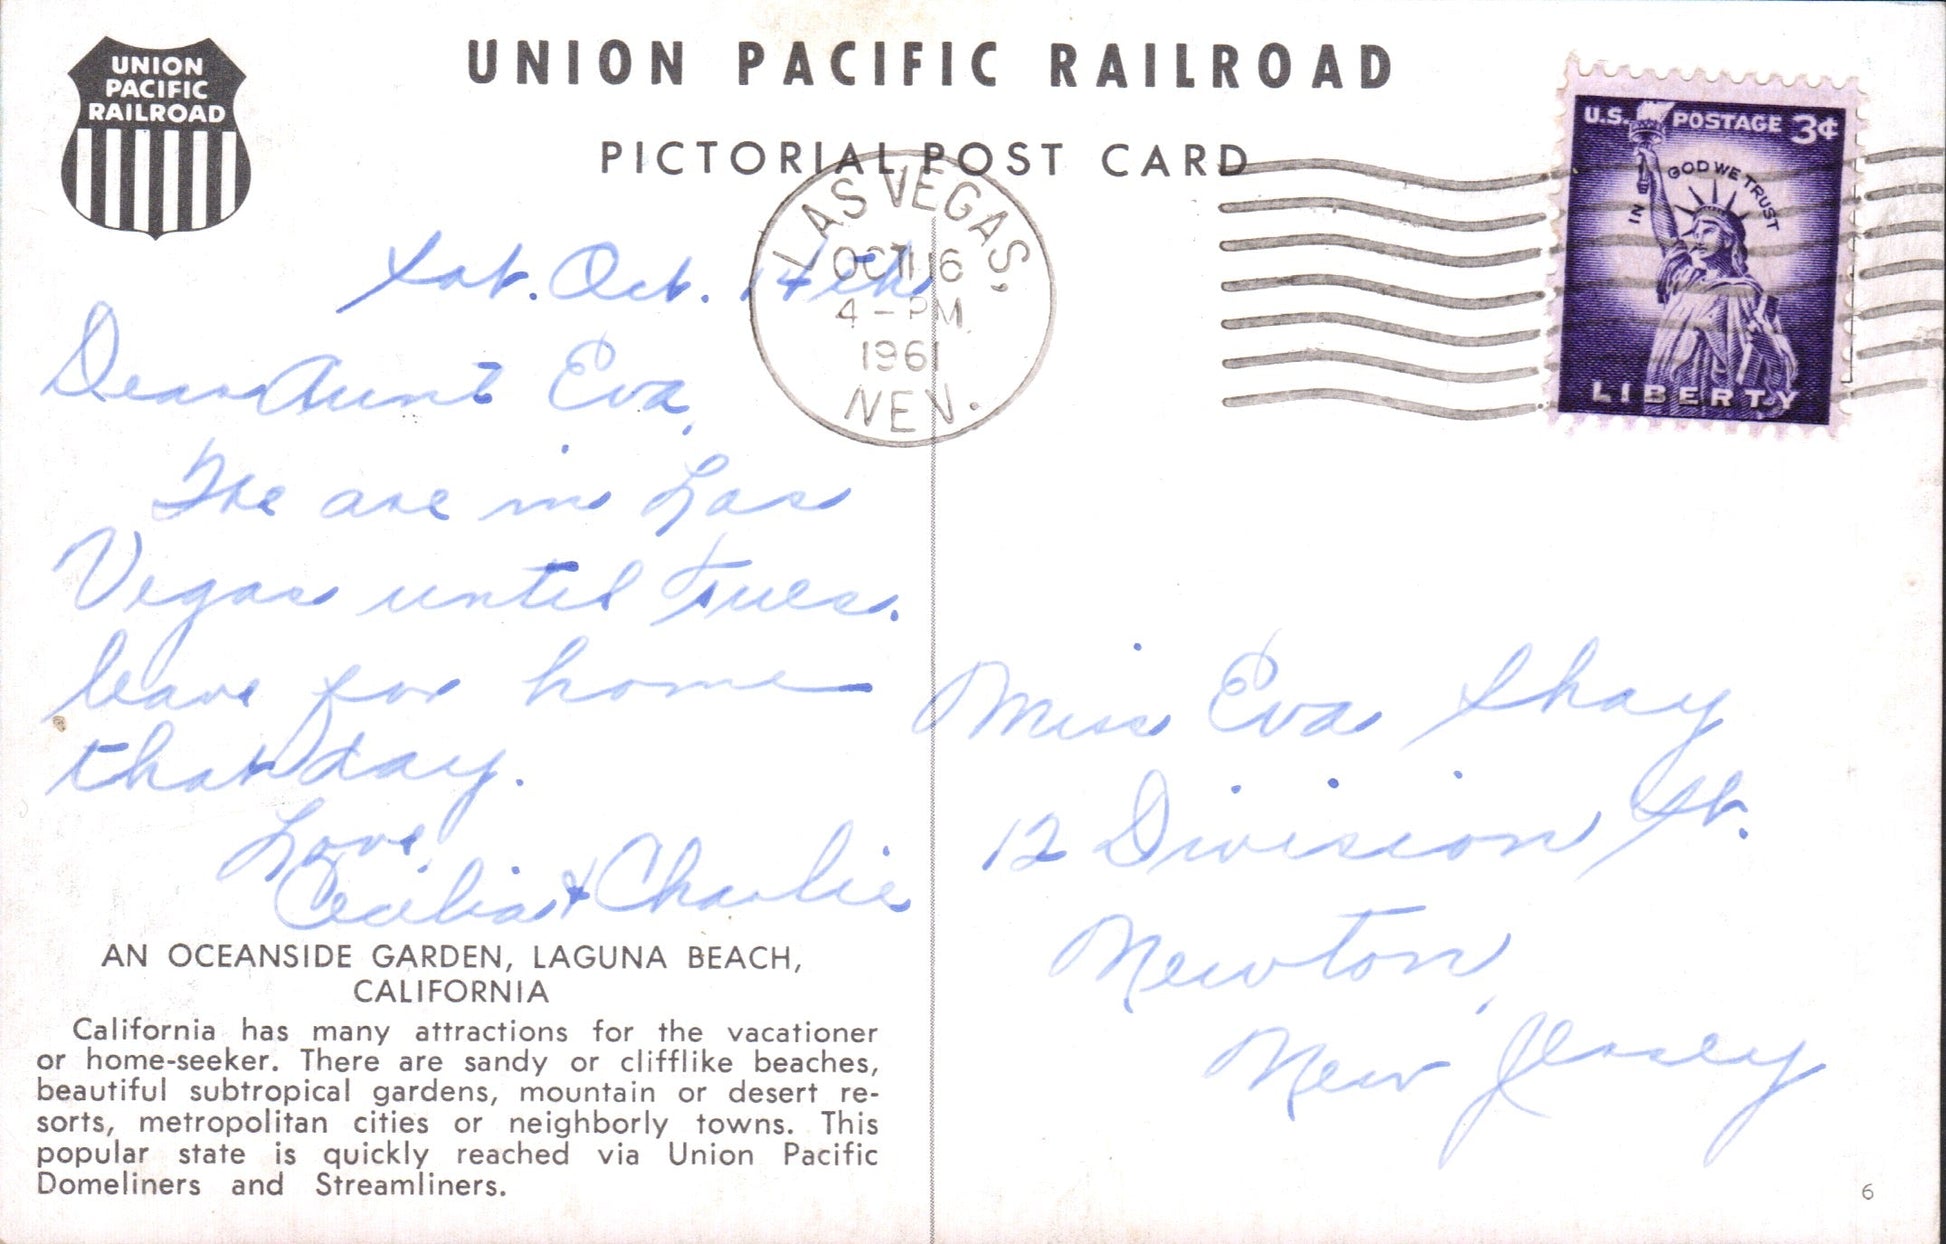 UNION
PACIFIC
RAILROAD
UNION PACIFIC RAILROAD
PICTORIAL POST CARD
U.S. POSTAGE 3¢
IN GOD WE TRUST
LIBERTY
LAS VEGAS,
OCT 16
4-PM
1961
NEV.
Sat. Oct. 14th
Dear Aunt Eva,
We are in Las
Vegas until Tues.
leave for home
that day.
Love,
Cecilia & Charlie
AN OCEANSIDE GARDEN, LAGUNA BEACH,
CALIFORNIA
California has many attractions for the vacationer
or home-seeker. There are sandy or clifflike beaches,
beautiful subtropical gardens, mountain or desert re-
sorts, metropolitan cities or neighborly towns. This
popular state is quickly reached via Union Pacific
Domeliners and Streamliners.
Miss Eva Shay
12 Division St.
Newton,
New Jersey
6